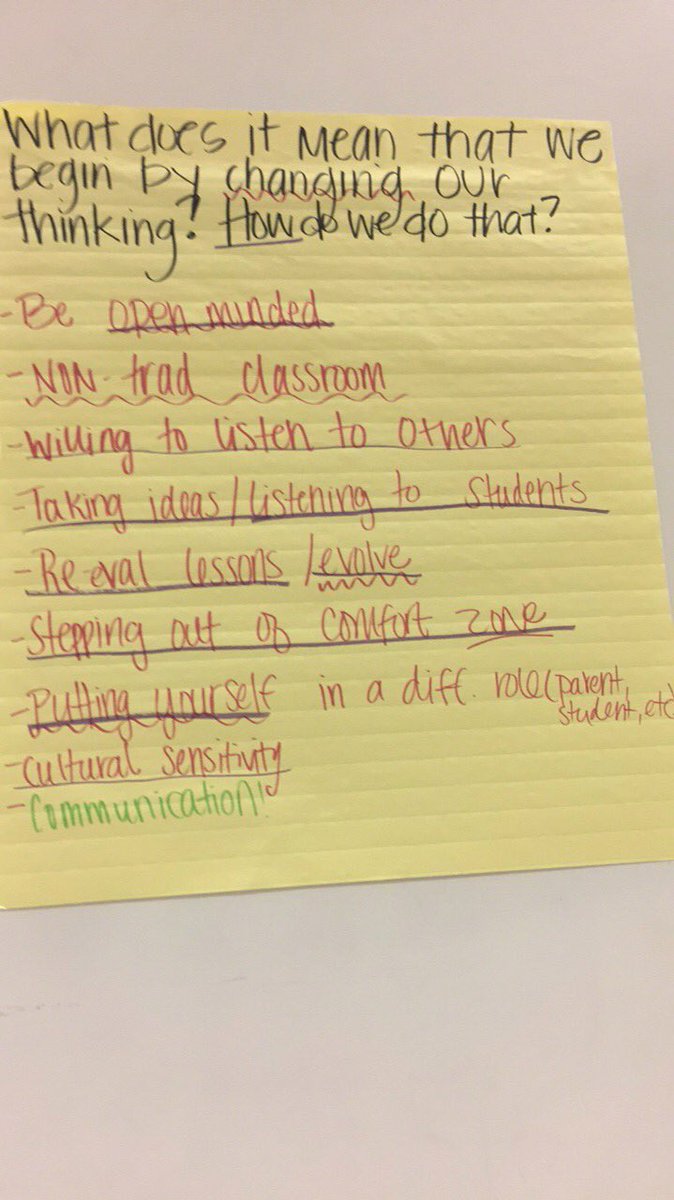 What does it mean that we
begin by changing our
thinking? How do we do that?
-Be open minded
-NON-trad classroom
-Willing to listen to others
-Taking ideas/listening to students
-Re-eval lessons/evolve
-Stepping out of comfort zone
-Putting yourself in a diff. role (parent,
student, etc
-cultural sensitivity
-communication!